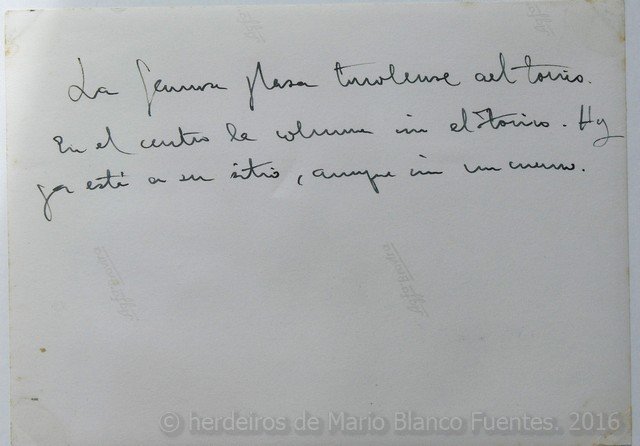 La famosa plaza turolense del torico.
En el centro la columna sin el Torico. Hoy
ya está en su sitio, aunque sin un cuerno.
© herdeiros de Mario Blanco Fuentes. 2016